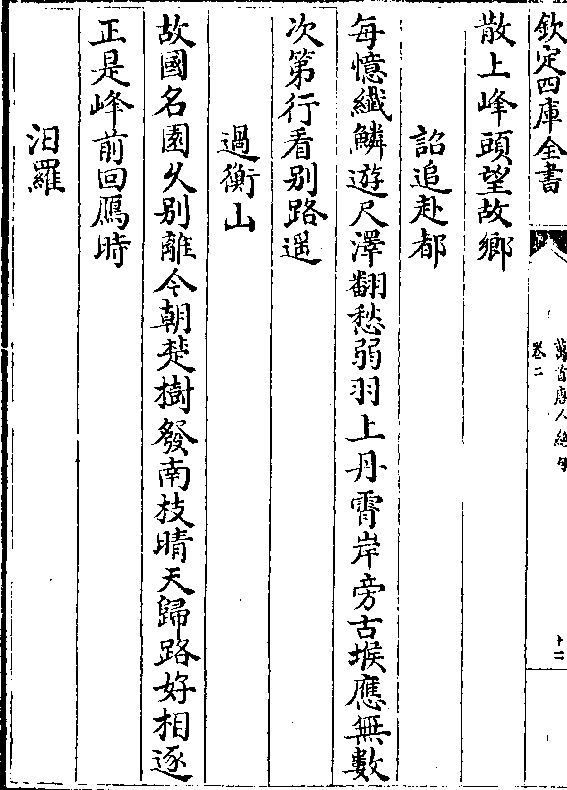 欽定四庫全書
萬首唐人絶句
卷二
十二
散上峰頭望故鄉
詔追赴都
每憶纎鱗遊尺澤翻愁弱羽上丹霄岸旁古堠應無數
次第行看别路遥
過衡山
故國名園久别離今朝楚樹發南枝晴天歸路好相逐
正是峰前回鴈時
汨羅